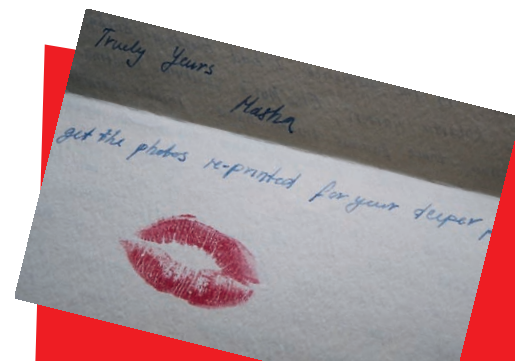 Truely Yours
Masha
get the photos re-printed for your deeper